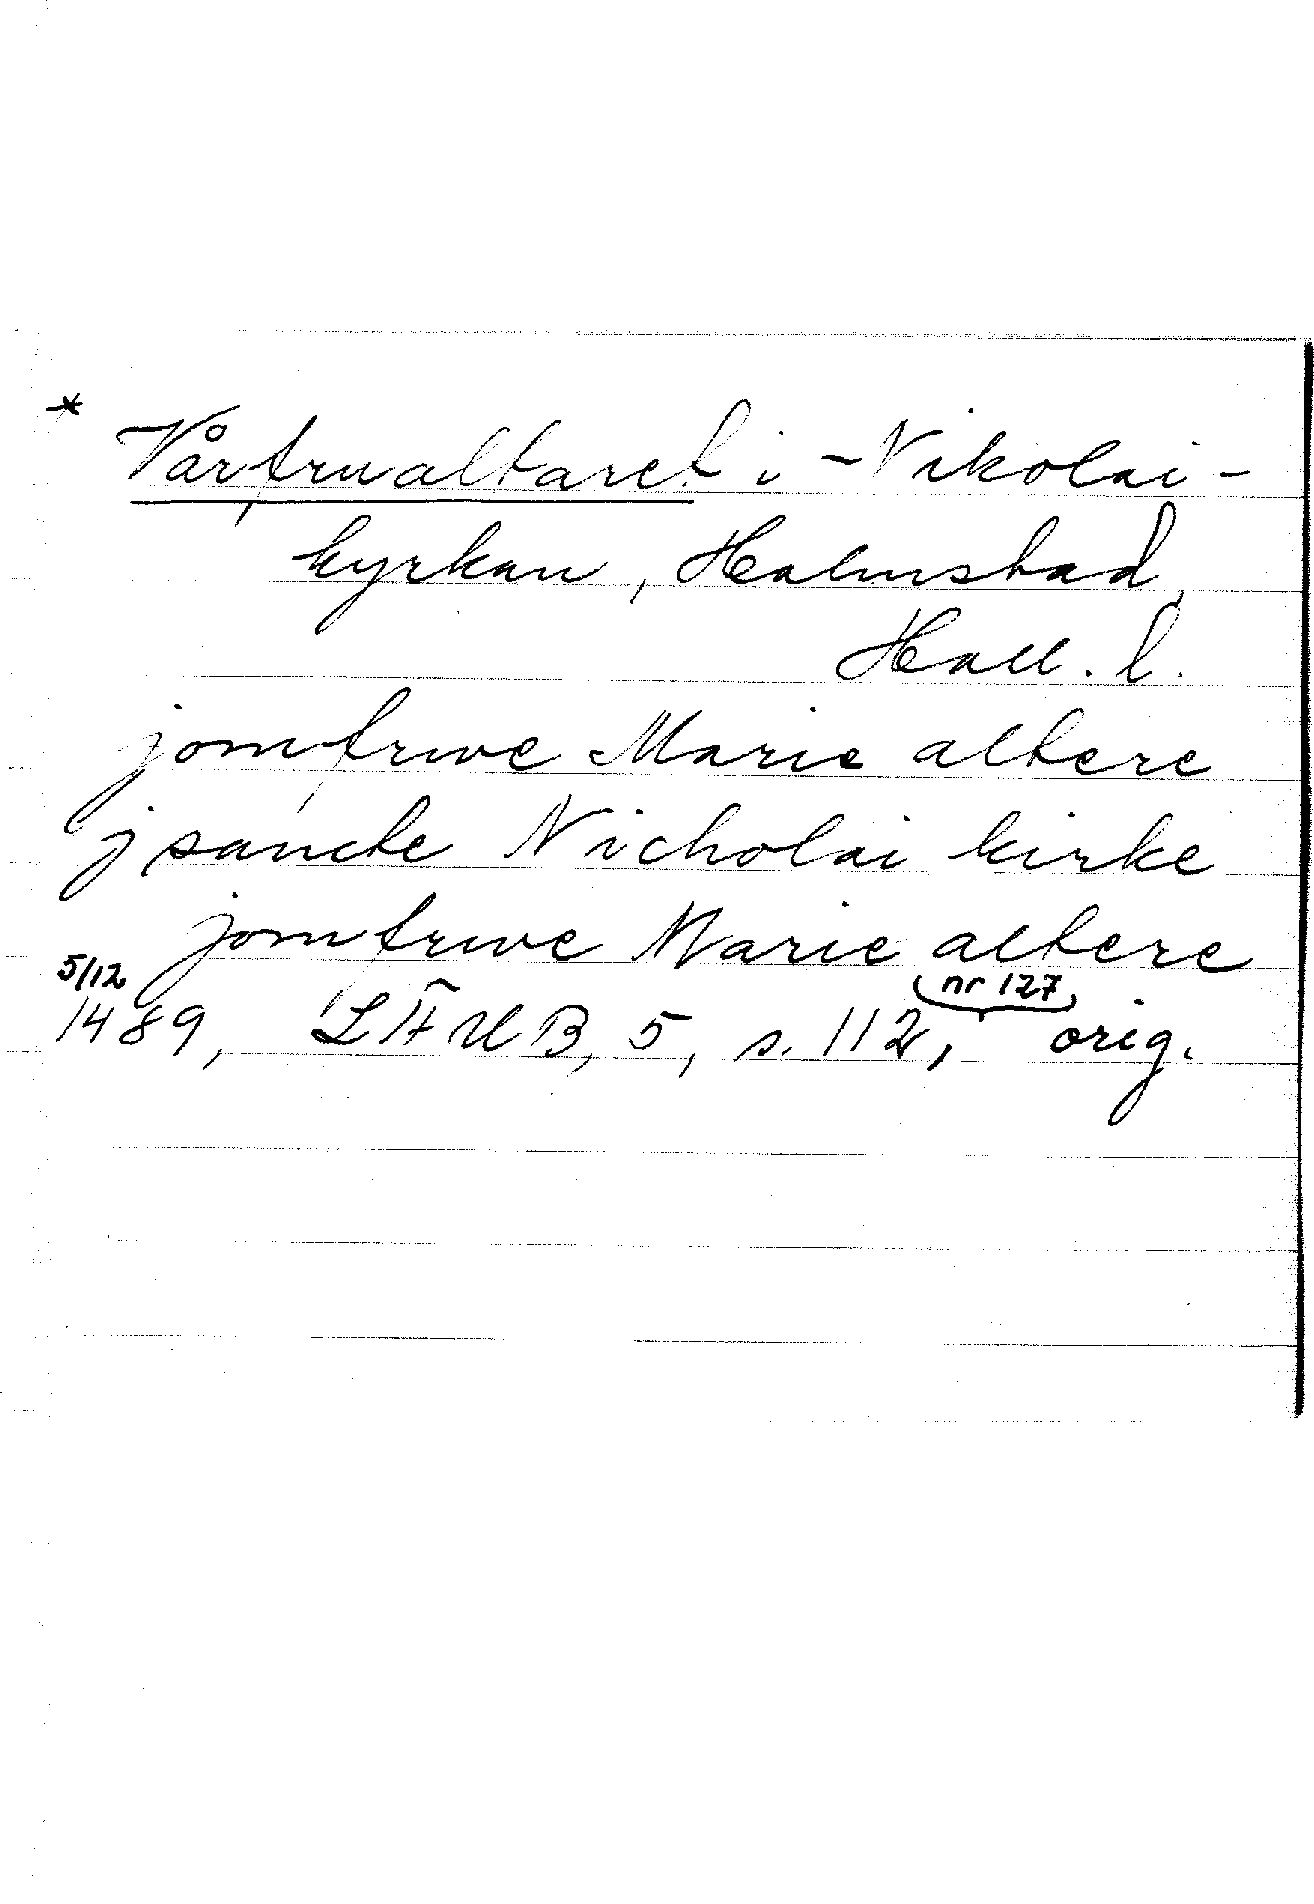 * Vårfrualtaret i Nikolai-
kyrkan, Halmstad,
Hall. l.
jomfrwe Marie altere
j sancte Nicholai kirke
jomfrwe Marie altere
5/12 nr 127
1489, LÄUB, 5, s. 112, orig.